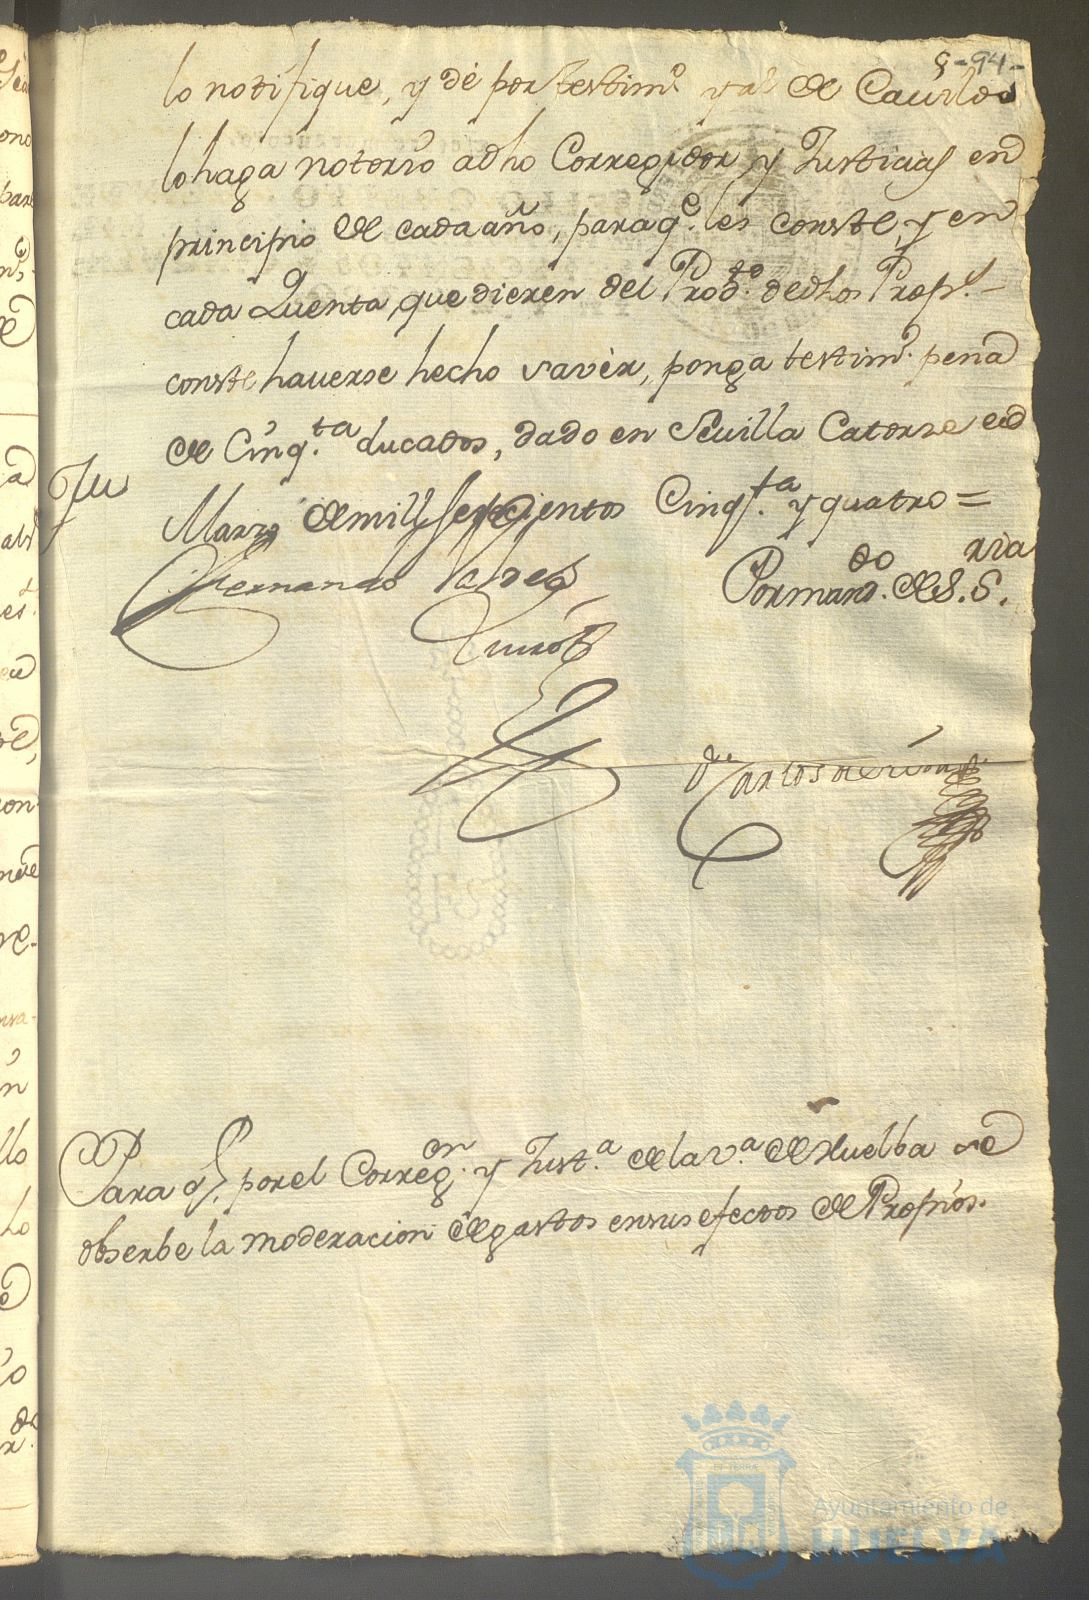 8-94-
lo notifique, y dè por testimº y el de Cavildo
lo haga notorio a dho Corregidor, y Justicias en
principio de cada año, para qe. les conste, y en
cada Quenta, que dieren del Prodto. de dhos Props.
conste haverse hecho savèr, ponga testimº. pena
de Cinqta. ducados, dado en Sevilla Catorze de
Marzo de mill Setecientos Cinqta. y quatro =
Fernando Valdes
Quirós
Por mando. de S. Sria.
Dn Carlos de
Para q. por el Corregor. y Justa. de la va. de Huelba se
obserbe la moderacion de gastos en sus efectos de Propios.
Ayuntamiento de
HUELVA